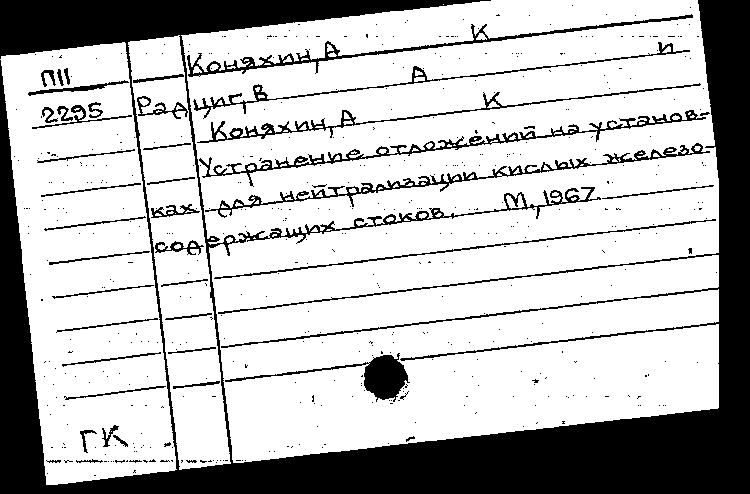 Коняхин, А К
П11
2295 Радциг, В А и
Коняхин, А К
Устранение отложений на установ-
ках для нейтрализации кислых железо-
содержащих стоков. М., 1967.
ГК